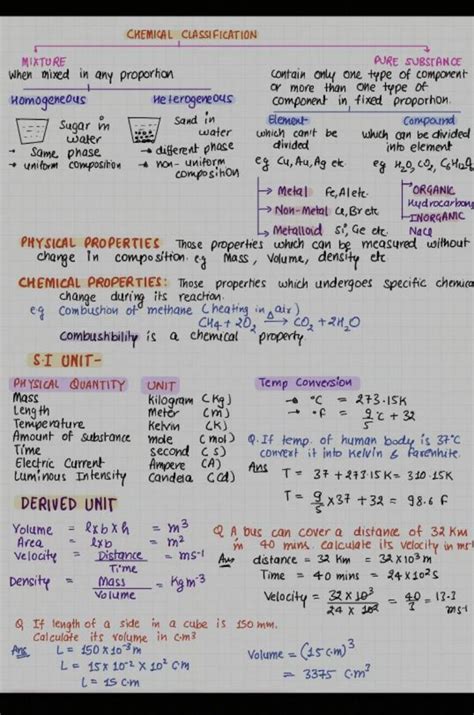 CHEMICAL CLASSIFICATION
MIXTURE
When mixed in any proportion
Homogeneous
Sugar in
water
→ Same phase
→ uniform composition
Heterogeneous
Sand in
water
→ different phase
→ non-uniform
composition
PURE SUBSTANCE
Contain only one type of component
or more than one type of
component in fixed proportion.
Element
which can't be
divided
eg Cu, Au, Ag etc
Compound
which can be divided
into element
eg H₂O, CO₂, C₆H₁₂O₆
→ Metal Fe, Al etc.
→ Non-Metal Cl, Br etc
→ Metalloid Si, Ge etc.
→ ORGANIC
Hydrocarbons
→ INORGANIC
NaCl
PHYSICAL PROPERTIES Those properties which can be measured without
change in composition. eg Mass, Volume, density etc
CHEMICAL PROPERTIES: Those properties which undergoes specific chemical
change during its reaction.
eg Combustion of methane (heating in air)
CH₄ + 2O₂ —Δ→ CO₂ + 2H₂O
Combustibility is a chemical property.
S.I UNIT-
PHYSICAL QUANTITY UNIT
Mass kilogram (kg)
Length Meter (m)
Temperature Kelvin (K)
Amount of substance mole (mol)
Time second (s)
Electric Current Ampere (A)
Luminous Intensity Candela (Cd)
Temp Conversion
→ °C = 273.15K
→ °F = 9/5 °C + 32
Q. If temp. of human body is 37°C
convert it into Kelvin & Farenhite.
Ans T = 37 + 273.15K = 310.15K
T = 9/5 × 37 + 32 = 98.6 F
DERIVED UNIT
Volume = l×b×h = m³
Area = l×b = m²
Velocity = Distance/Time = ms⁻¹
Density = Mass/Volume = Kgm⁻³
Q A bus can cover a distance of 32 Km
in 40 mins. Calculate its velocity in ms⁻¹
Ans distance = 32 Km = 32×10³m
Time = 40 mins = 24×10²s
Velocity = 32×10³/24×10² = 40/3 = 13.3
ms⁻¹
Q If length of a side in a cube is 150 mm.
Calculate its volume in c.m³
Ans L = 150×10⁻³m
L = 15×10⁻²×10² c.m
L = 15 c.m
Volume = (15 c.m)³
= 3375 c.m³